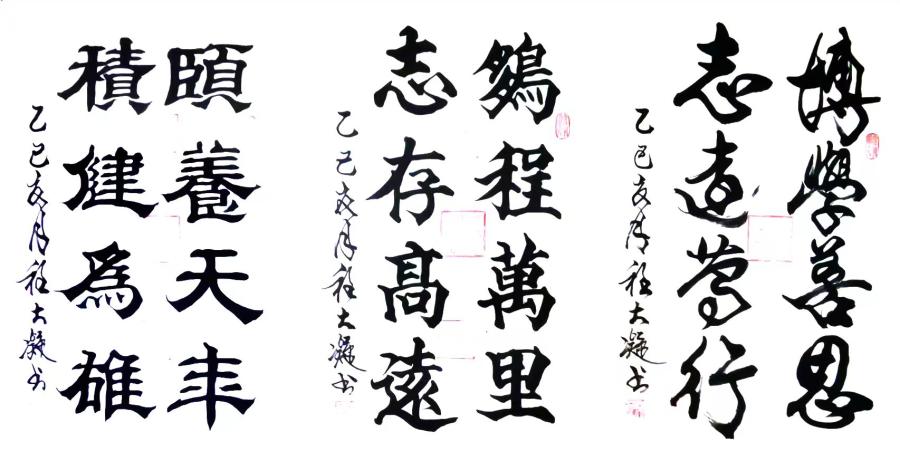 博學善思
志遠篤行
乙巳亥月程大凝书
鵬程萬里
志存髙遠
乙巳亥月程大凝书
頤養天年
積健爲雄
乙巳亥月程大凝书